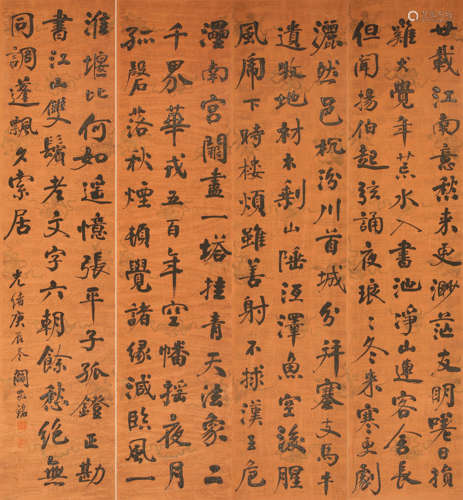 廿載江南意愁來更渺茫支明嗟日損
雞犬覺年荒水入書池淨山連客舍長
但聞揚伯起弦誦夜琅〻冬來寒更劇
灑然邑枕汾川首城分拜塞支馬牛
遺牧地材木剩山陲江澤魚空後腥
風鬧下時樓煩雖善射不捄漢王危
灃南宮闕盡一塔挂青天法象二
千界華戎五百年空幡搖夜月
孤磬落秋煙頓覺諸緣滅臨風一
淮堰比何如遥憶張平子孤鐙正勘
書江山雙鬢老文字六朝餘愁絕無
同調蓬飄久索居
光緒庚辰冬 閻